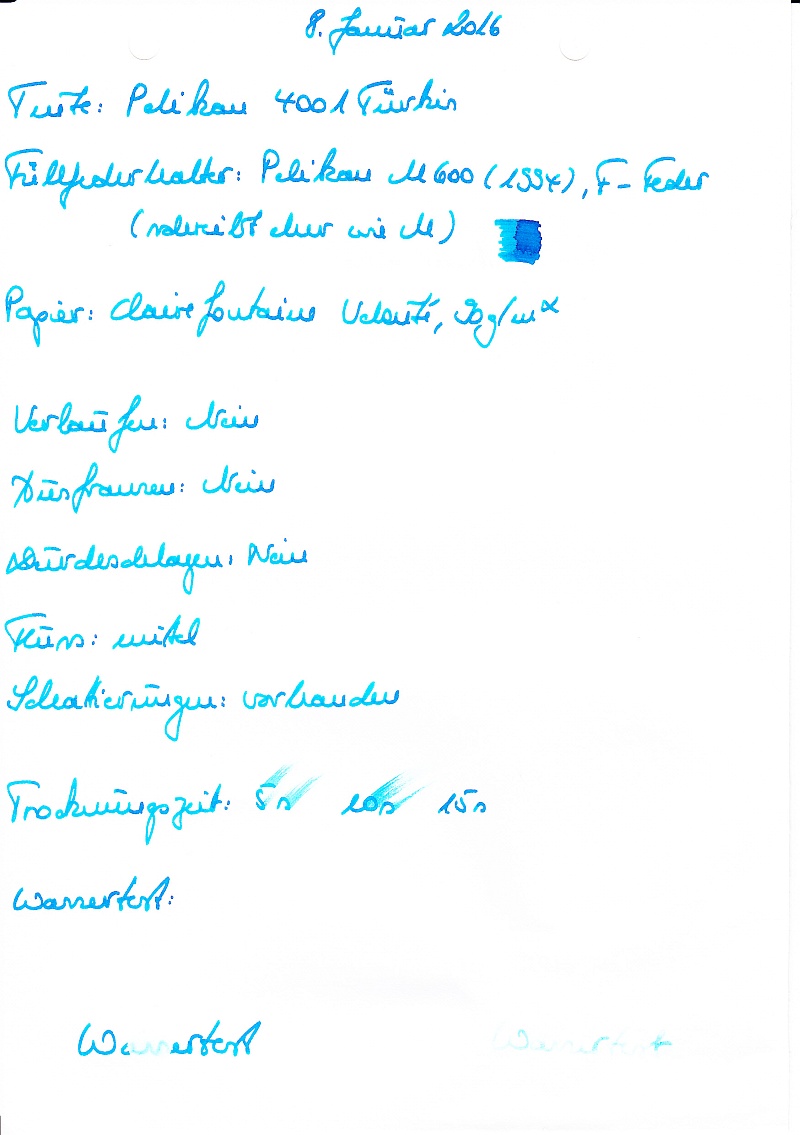 8. Januar 2016
Tinte: Pelikan 4001 Türkis
Füllfederhalter: Pelikan M600 (1997), F-Feder
(schreibt eher wie M)
Papier: Clairefontaine Velouté, 90g/m²
Verlaufen: Nein
Ausfransen: Nein
Durchschlagen: Nein
Fluss: mittel
Schattierungen: vorhanden
Trocknungszeit: 5s 10s 15s
Wassertest:
Wassertest Wassertest